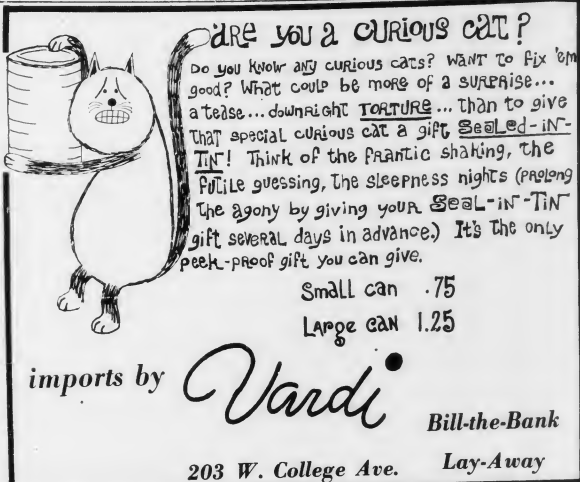 are you a curious cat?
Do you know any curious cats? Want to fix 'em
good? What could be more of a surprise...
a tease... downright torture... than to give
that special curious cat a gift Sealed-in-
Tin! Think of the frantic shaking, the
futile guessing, the sleepness nights (prolong
the agony by giving your Seal-in-Tin
gift several days in advance.) It's the only
peek-proof gift you can give.
Small can .75
Large can 1.25
imports by Vardi
Bill-the-Bank
203 W. College Ave. Lay-Away